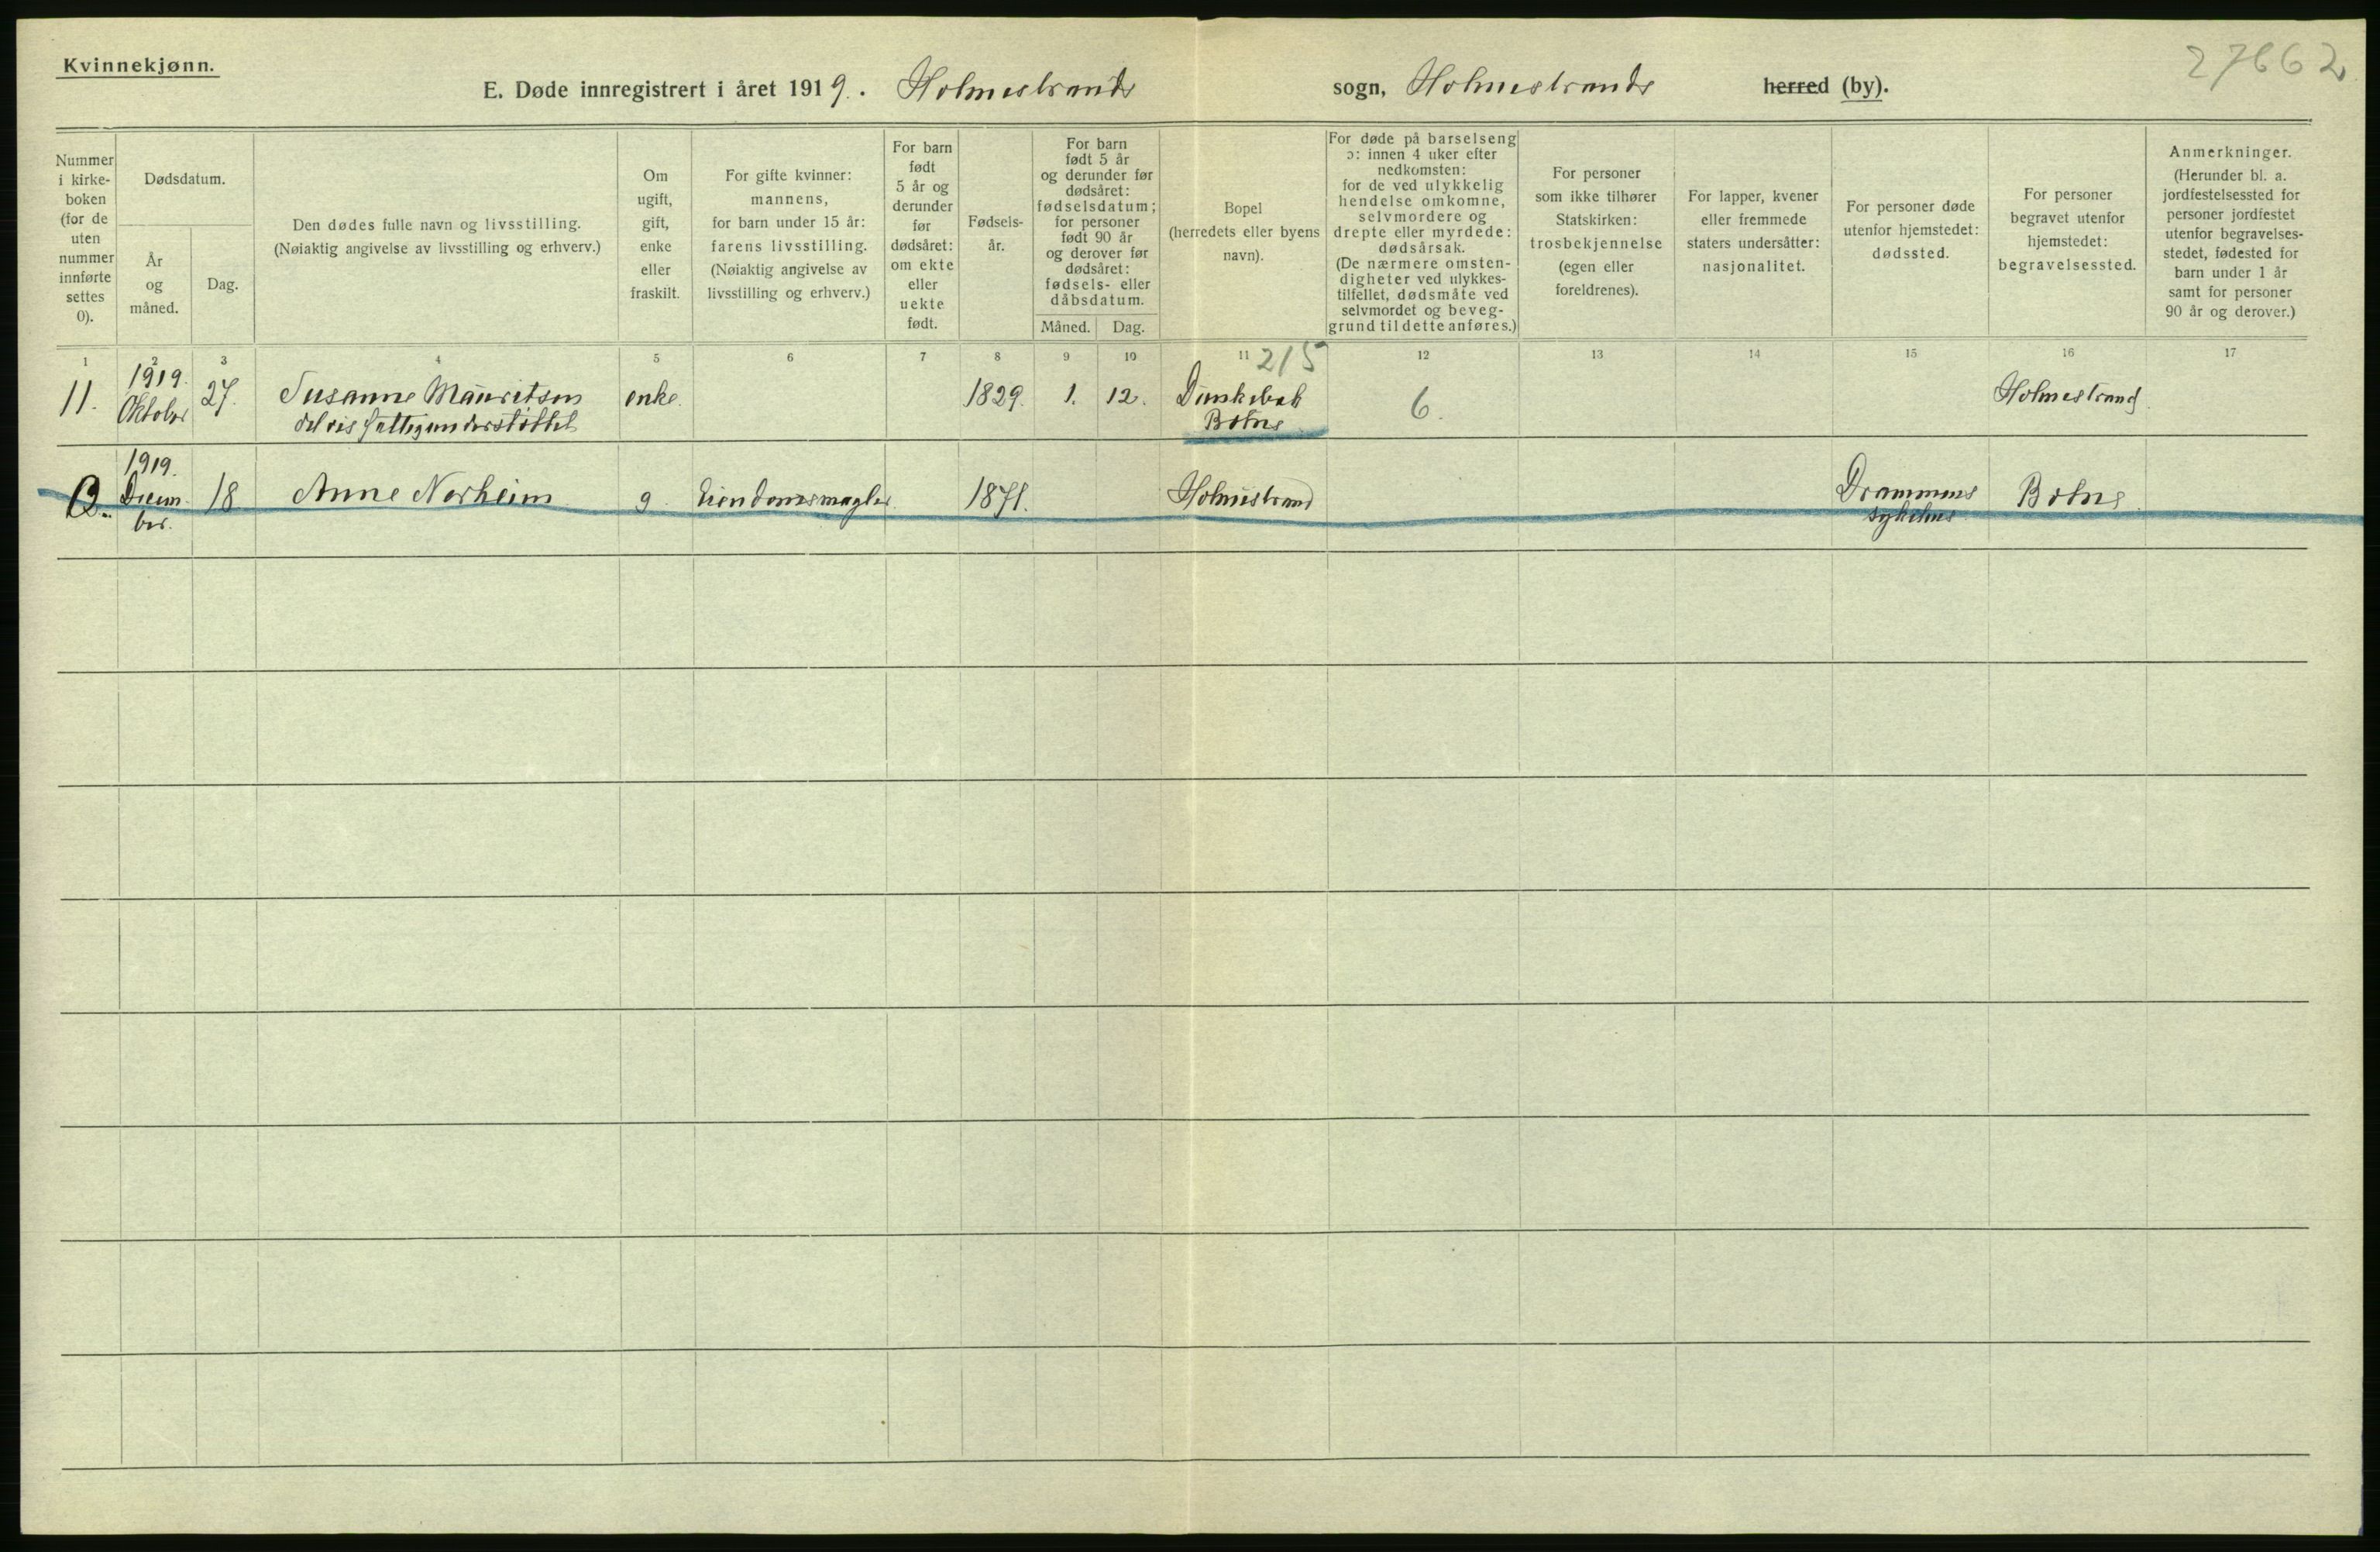 Kvinnekjønn.
27662
E. Døde innregistrert i året 1919. Holmestrands sogn, Holmestrands herred (by).
Nummer i kirke- boken (for de uten nummer innførte settes 0).
Dødsdatum.
År og måned.
Dag.
Den dødes fulle navn og livsstilling.
(Nøiaktig angivelse av livsstilling og erhverv.)
Om ugift, gift, enke eller fraskilt.
For gifte kvinner: mannens, for barn under 15 år: farens livsstilling. (Nøiaktig angivelse av livsstilling og erhverv.)
For barn født 5 år og derunder før dødsåret: om ekte eller uekte født.
Fødsels- år.
For barn født 5 år og derunder før dødsåret: fødselsdatum; for personer født 90 år og derover før dødsåret: fødsels- eller dåbsdatum.
Måned. Dag.
Bopel (herredets eller byens navn).
For døde på barselseng ɔ: innen 4 uker efter nedkomsten: for de ved ulykkelig hendelse omkomne, selvmordere og drepte eller myrdede: dødsårsak. (De nærmere omsten- digheter ved ulykkes- tilfellet, dødsmåte ved selvmordet og beveg- grund til dette anføres.)
For personer som ikke tilhører Statskirken: trosbekjennelse (egen eller foreldrenes).
For lapper, kvener eller fremmede staters undersåtter: nasjonalitet.
For personer døde utenfor hjemstedet: dødssted.
For personer begravet utenfor hjemstedet: begravelsessted.
Anmerkninger. (Herunder bl. a. jordfestelsessted for personer jordfestet utenfor begravelses- stedet, fødested for barn under 1 år samt for personer 90 år og derover.)
1 2 3 4 5 6 7 8 9 10 11 12 13 14 15 16 17
215
11. 1919. Oktober 27. Susanne Mauritsen enke. 1829. 1. 12. 6. Holmestrand
delvis fattigunderstøttet Botne
1919. Decem- ber. 18 Anne Norheim g. Eiendomsmægler. 1871. Holmestrand Drammens Botne
sykehus